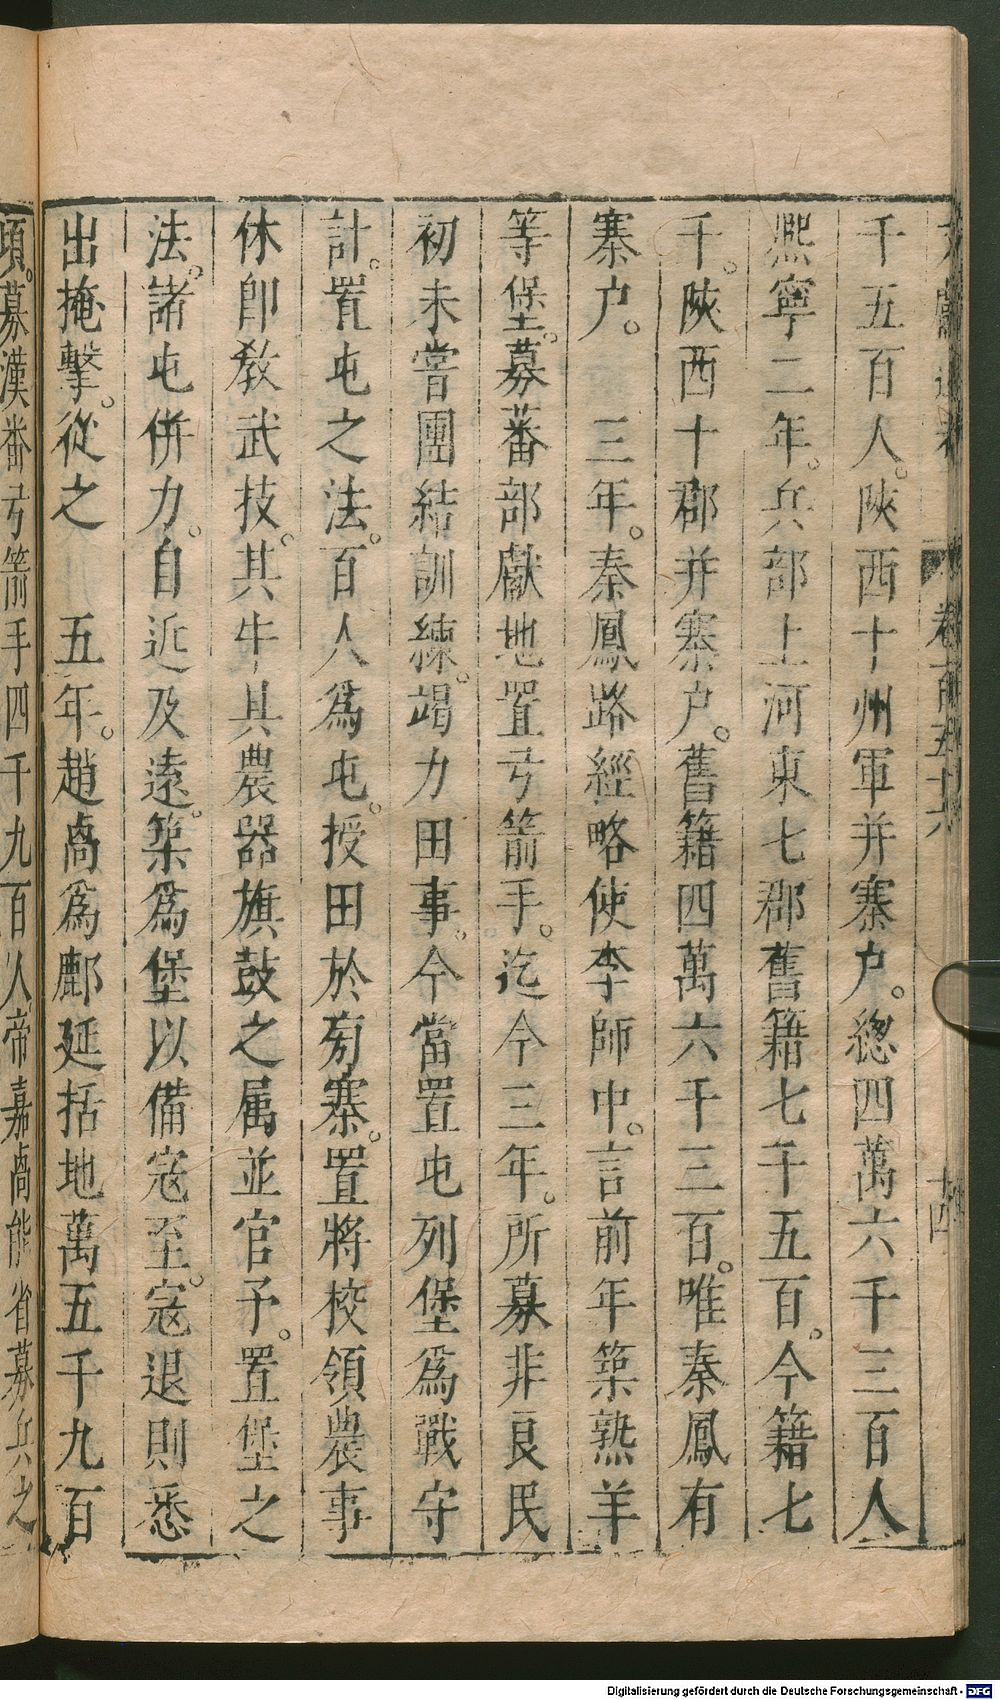 文獻通考
卷一百五十六
十四
千五百人。陝西十州軍并寨户。緫四萬六千三百人
熙寧二年。兵部上河東七郡舊籍七千五百。今籍七
千。陝西十郡并寨户。舊籍四萬六千三百。唯秦鳳有
寨户。　三年。秦鳳路經略使李師中。言前年築熟羊
等堡。募蕃部獻地置弓箭手。迄今三年。所募非良民
初未嘗團結訓練。竭力田事。今當置屯列堡爲戰守
計。置屯之法。百人爲屯。授田於旁寨。置將校領農事
休即教武技。其牛具農器旗鼓之属並官予。置堡之
法。諸屯併力。自近及遠。築爲堡以備寇至。寇退則悉
出掩擊。從之　五年。趙卨爲鄜延括地萬五千九百
頃。募漢番弓箭手四千九百人帝嘉卨能省募兵之
Digitalisierung gefördert durch die Deutsche Forschungsgemeinschaft - DFG